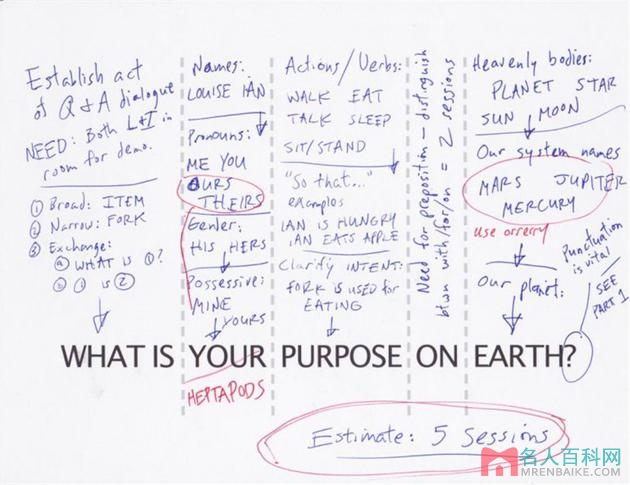 Establish act
of Q & A dialogue
NEED: Both L+I in
room for demo.
① Broad: ITEM
② Narrow: FORK
③ Exchange:
ⓐ WHAT IS ①?
ⓑ ① is ②
Names:
LOUISE IAN
Pronouns:
ME YOU
OURS
THEIRS
Gender:
HIS HERS
Possessive:
MINE
YOURS
Actions/Verbs:
WALK EAT
TALK SLEEP
SIT/STAND
"So that..."
examples
IAN IS HUNGRY
IAN EATS APPLE
Clarify INTENT:
FORK IS USED for
EATING
Need for preposition - distinguish
btwn with/for/on = 2 sessions
Heavenly bodies:
PLANET STAR
SUN MOON
Our system names
MARS JUPITER
MERCURY
use orrery
Our planet:
Punctuation
is vital
SEE
PART 1
WHAT IS YOUR PURPOSE ON EARTH?
HEPTAPODS
Estimate: 5 Sessions
名人百科网
MRENBAIKE.COM